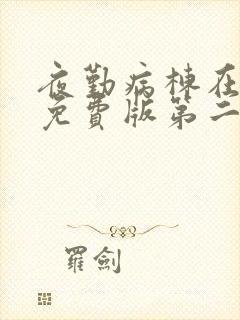 夜勤病棟在
免費版第二
羅劍